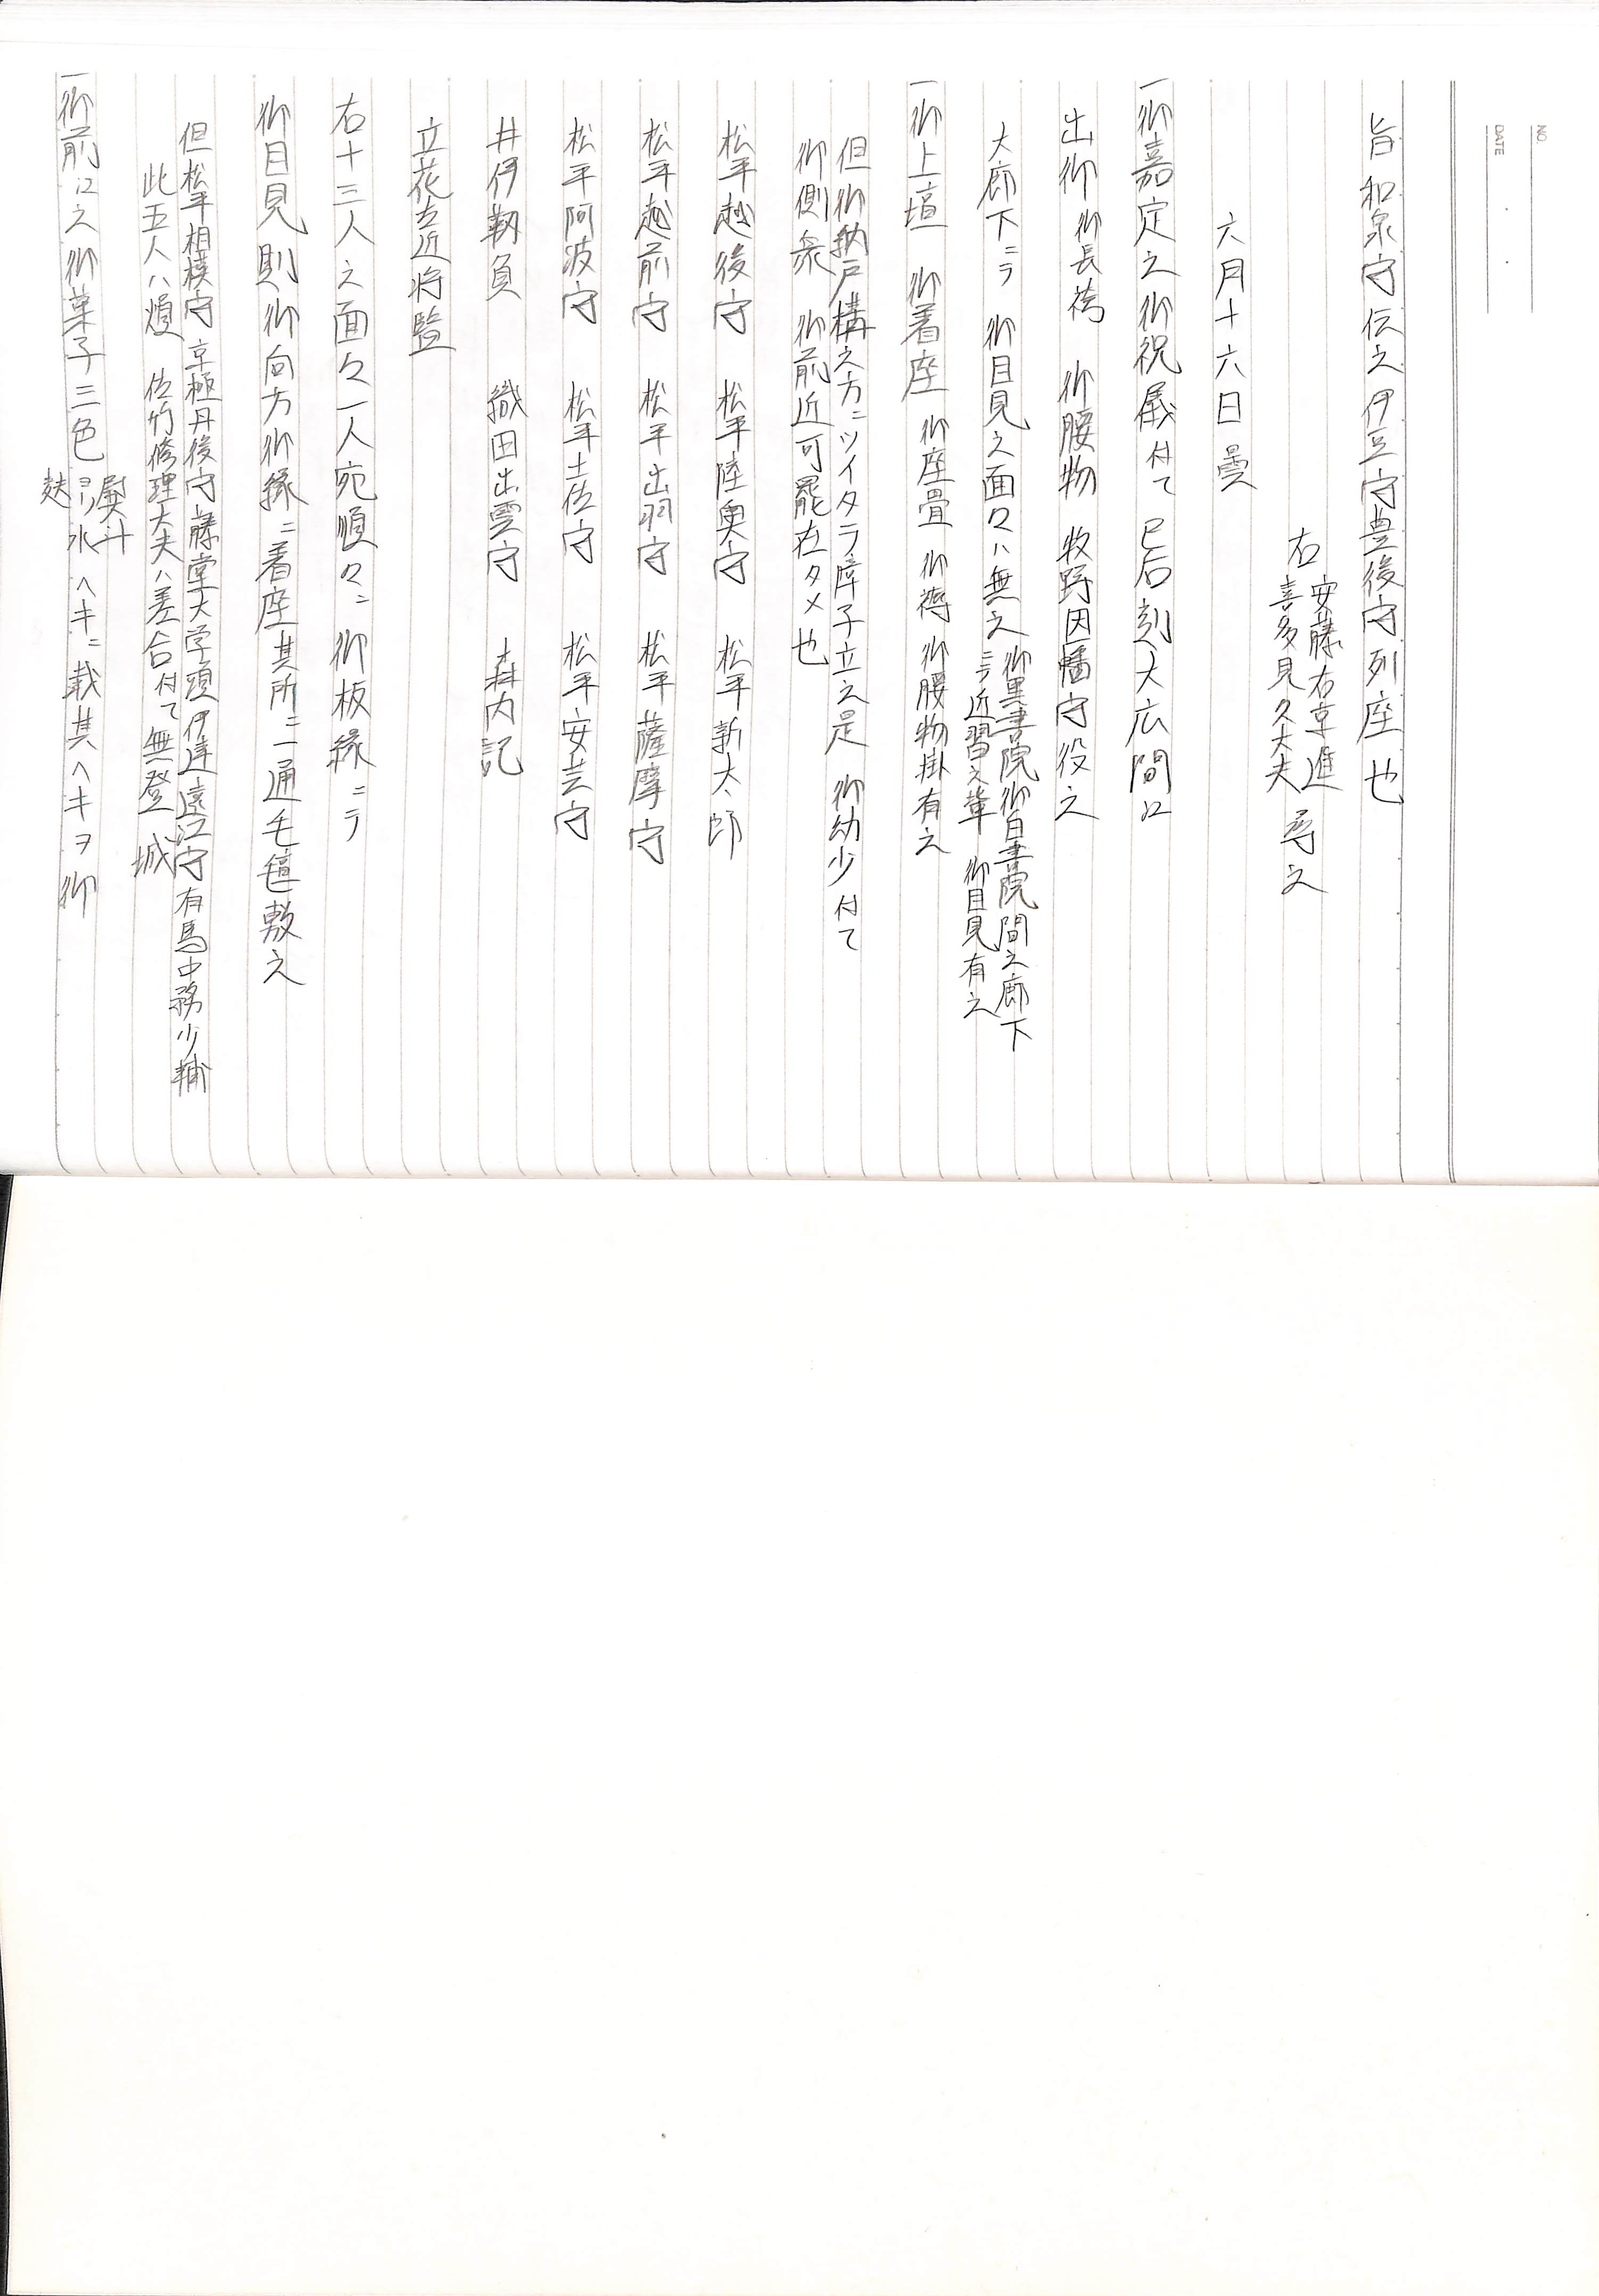 NO.
DATE
旨和泉守伝之伊豆守豊後守列座也
右 安藤右京進
喜多見久大夫 尋之
六月十六日曇
一御嘉定之御祝儀付て巳后刻大広間江
出御 御長袴 御腰物 牧野因幡守役之
大廊下ニテ 御目見之面々ハ無之 御黒書院御白書院間之廊下
ニテ近習之輩 御目見有之
一御上壇 御着座 御座畳 御褥 御腰物掛有之
但御納戸構之方ニツイタテ障子立之是 御幼少付て
御側衆 御前近可罷在タメ也
松平越後守 松平陸奥守 松平新太郎
松平越前守 松平出羽守 松平薩摩守
松平阿波守 松平土佐守 松平安芸守
井伊靱負 織田出雲守 森内記
立花左近将監
右十三人之面々一人宛順々ニ 御板縁ニテ
御目見則御向方御縁ニ着座其所ニ一通毛氈敷之
但松平相模守 京極丹後守 藤堂大学頭 伊達遠江守 有馬中務少輔
此五人ハ煩 佐竹修理大夫ハ差合付て無登 城
一御前江之御菓子三色 熨斗
水
麩 ヘキニ載其ヘキヲ御